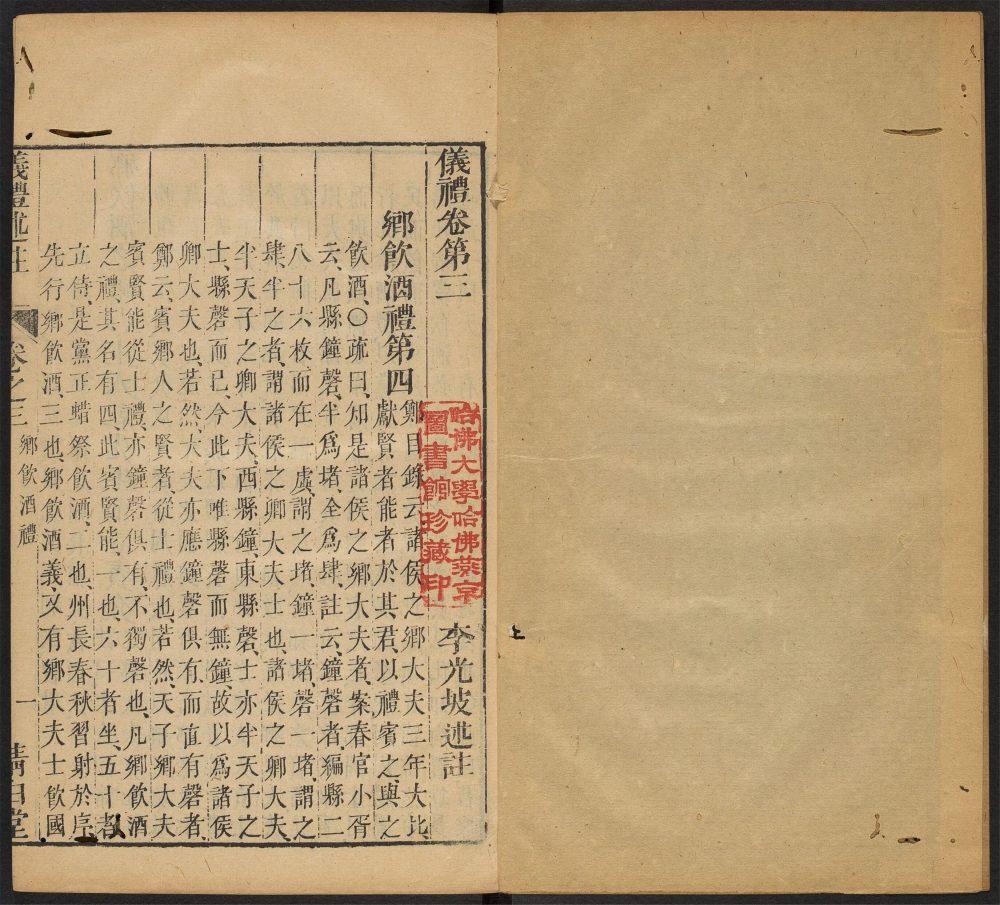 儀禮卷第三
李光坡述註
哈佛大學哈佛燕京
圖書館珍藏印
鄉飲酒禮第四
鄭目錄云諸侯之鄉大夫三年大比
獻賢者能者於其君、以禮賓之、與之
飲酒、○疏曰、知是諸侯之鄉大夫者、案春官小胥
云、凡縣鐘磬、半爲堵、全爲肆、註云、鐘磬者編縣二
八十六枚、而在一虡、謂之堵、鐘一堵、磬一堵、謂之
肆、半之者、謂諸侯之卿大夫士也、諸侯之卿大夫、
半天子之卿大夫、西縣鐘、東縣磬、士亦半天子之
士、縣磬而已、今此下唯縣磬而無鐘、故以爲諸侯
鄉大夫也、若然、大夫亦應鐘磬俱有、而直有磬者、
鄭云、賓鄉人之賢者、從士禮也、若然、天子鄉大夫
賓賢能從士禮、亦鐘磬俱有、不獨磬也、凡鄉飲酒
之禮、其名有四、此賓賢能、一也、六十者坐、五十者
立侍、是黨正蜡祭飲酒、二也、州長春秋習射於序、
先行鄉飲酒、三也、鄉飲酒義、又有鄉大夫士飲國
儀禮述註
卷之三
鄉飲酒禮
一
清白堂